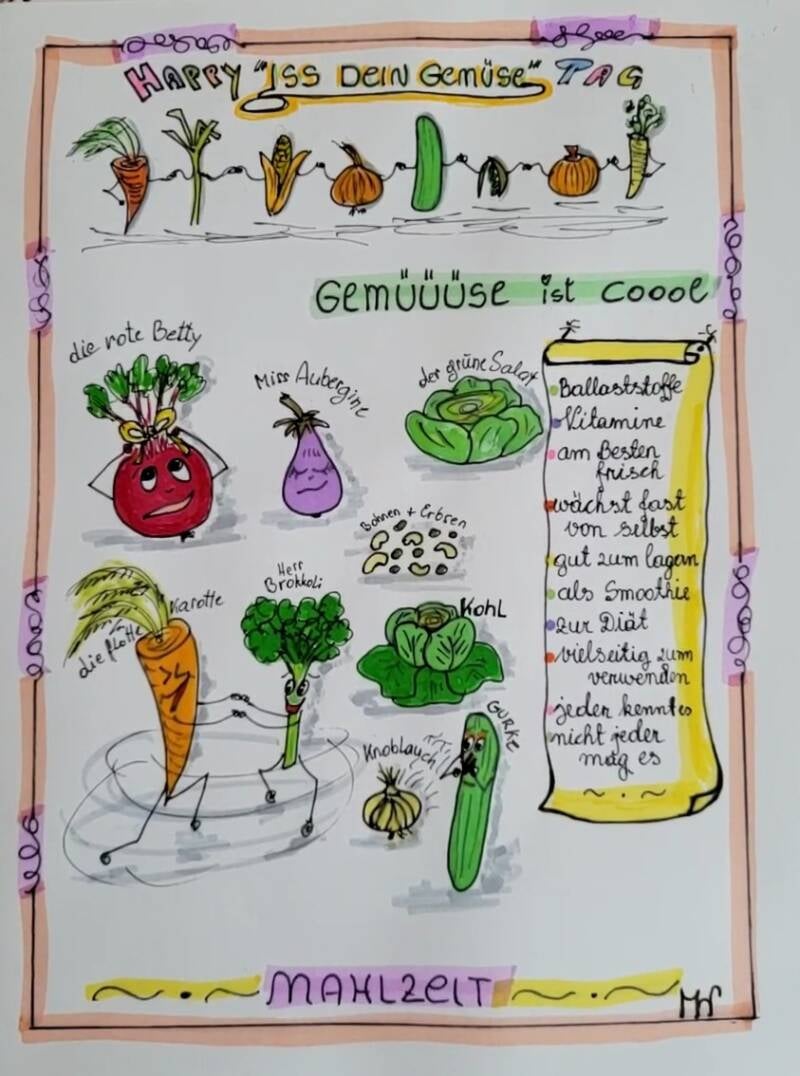 HAPPY "ISS DEIN GEMÜSE" TAG
GEMÜÜÜSE ist COOOL
die rote Betty
Miss Aubergine
der grüne Salat
Bohnen + Erbsen
die flotte Karotte
Herr
Brokkoli
Kohl
Knoblauch
GURKE
Ballaststoffe
Vitamine
am Besten
frisch
wächst fast
von selbst
gut zum lagern
als Smoothie
zur Diät
vielseitig zum
verwenden
jeder kennt es
nicht jeder
mag es
MAHLZEIT
MW